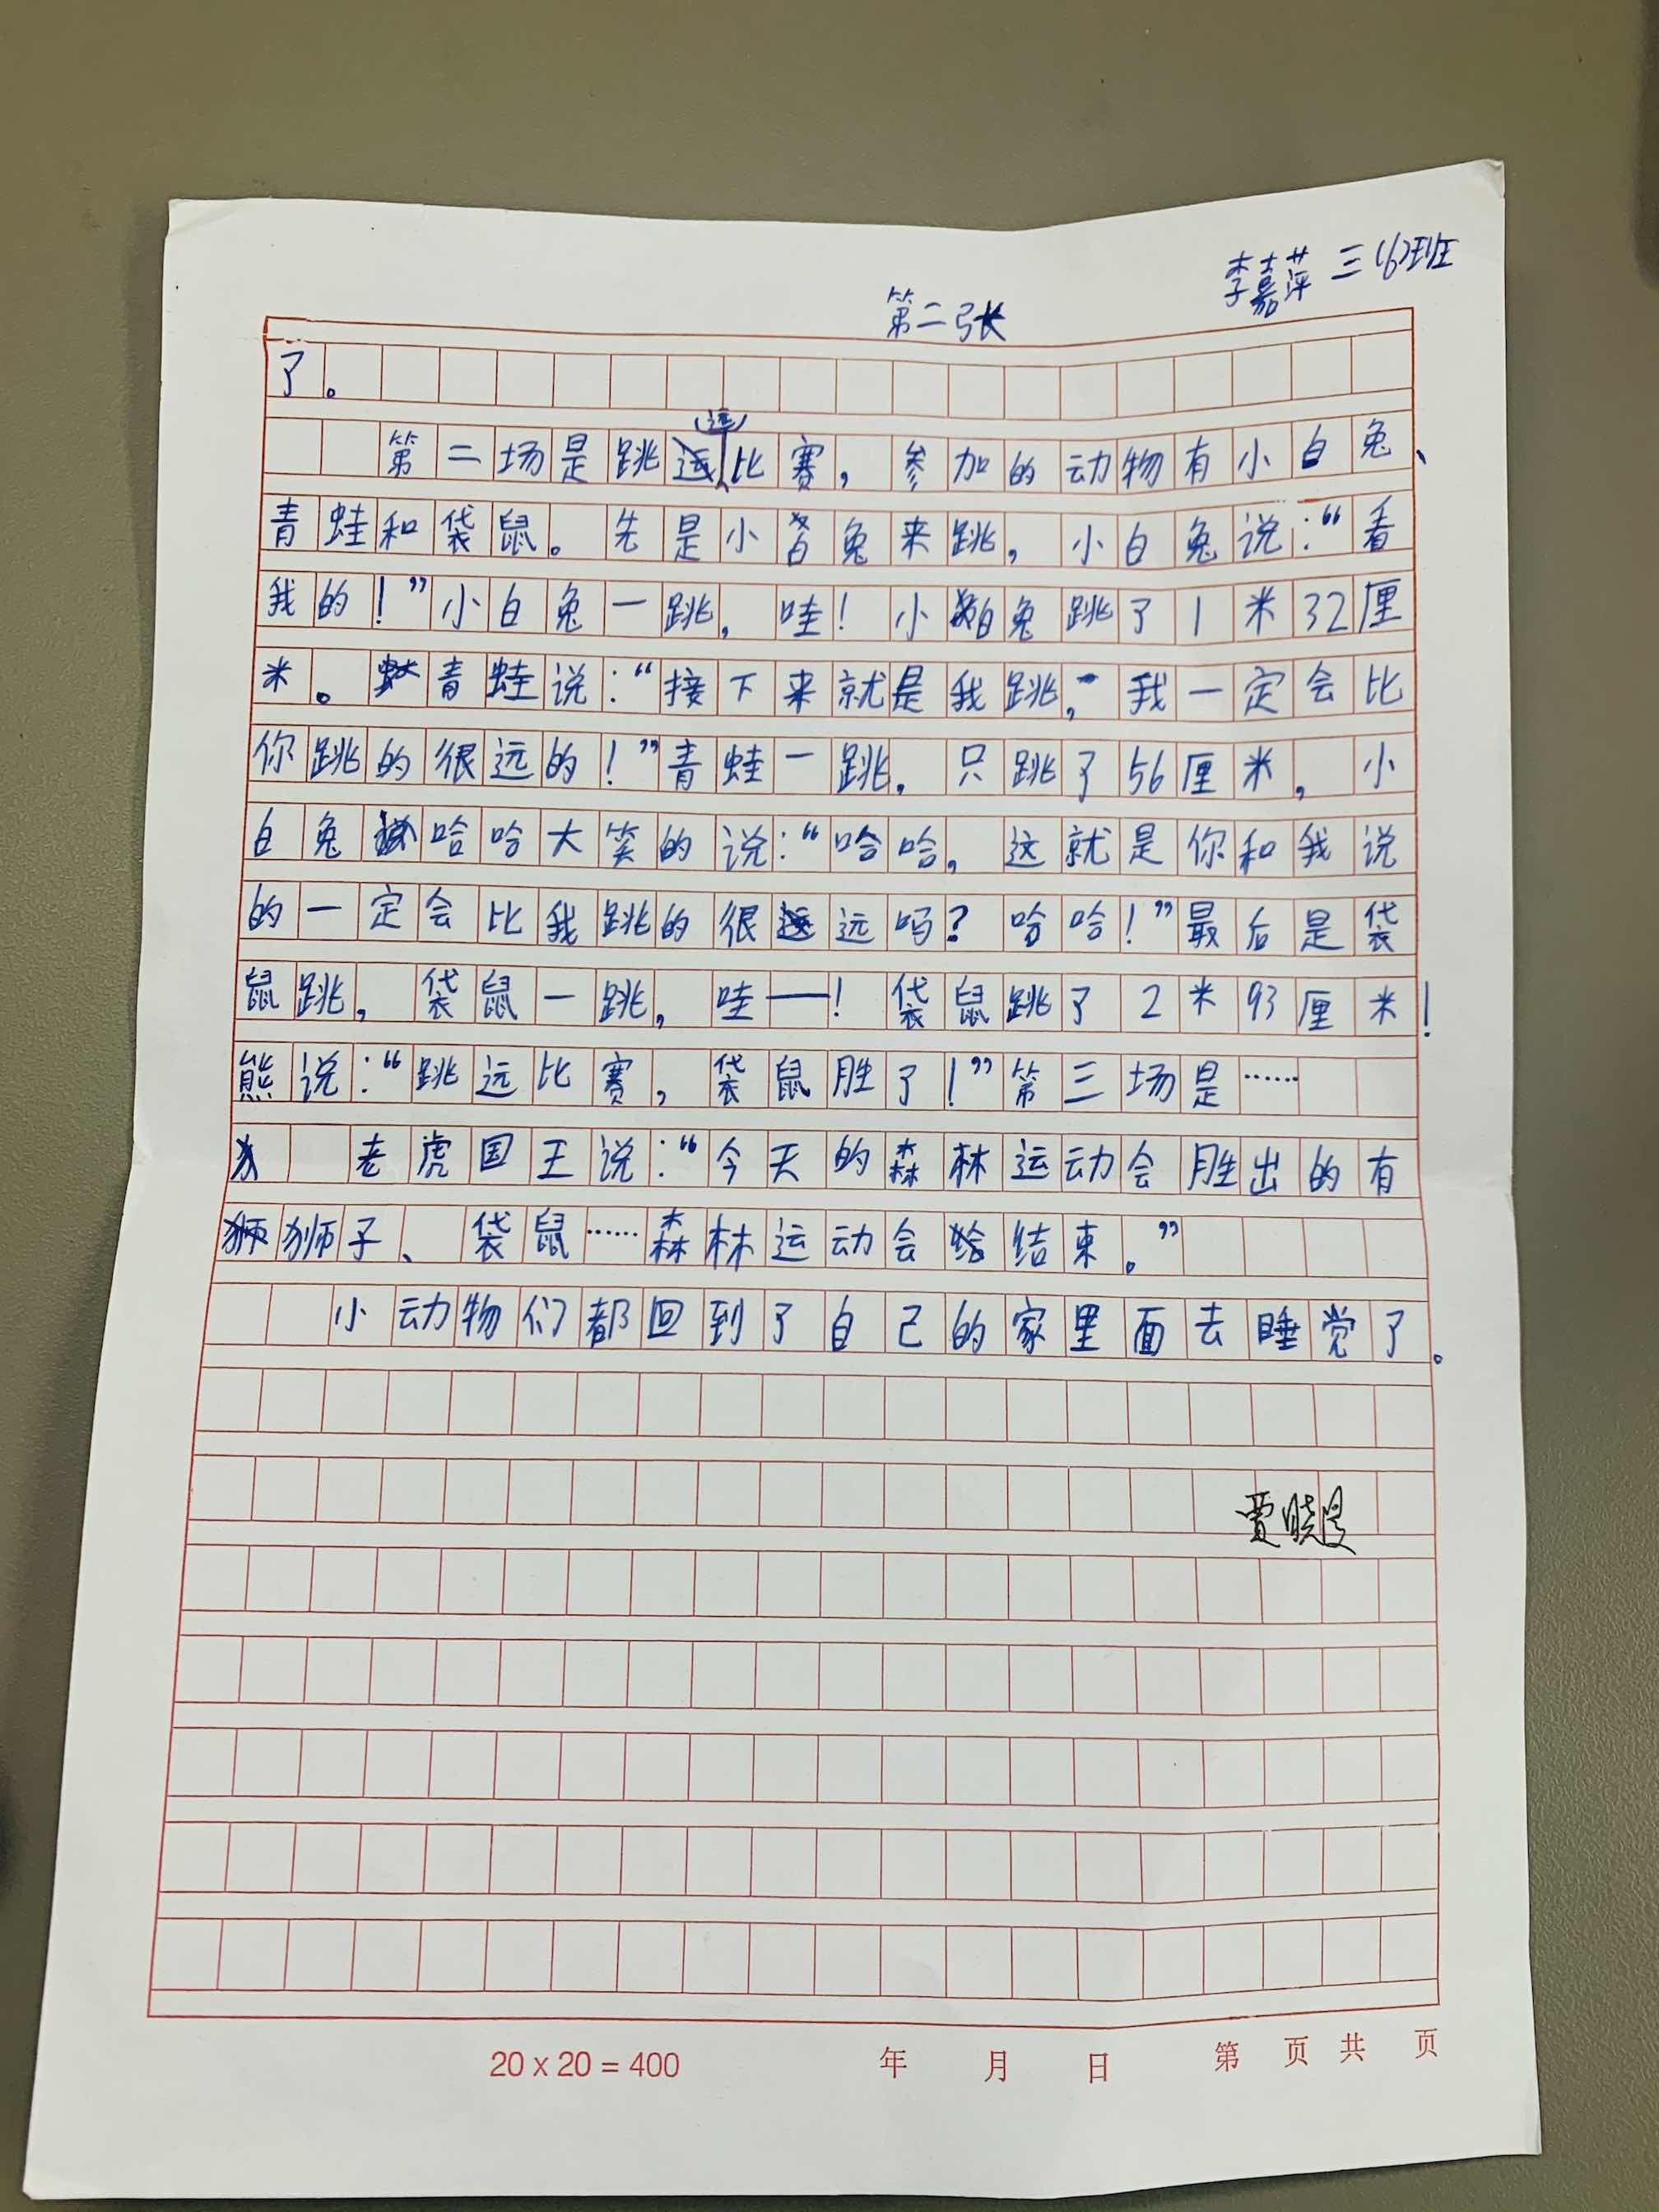 李嘉萍 三(6)班
第二张
了。
第二场是跳远比赛，参加的动物有小白兔、
青蛙和袋鼠。先是小白兔来跳，小白兔说：“看
我的！”小白兔一跳，哇！小白兔跳了1米32厘
米。青蛙说：“接下来就是我跳，我一定会比
你跳的很远的！”青蛙一跳，只跳了56厘米，小
白兔哈哈大笑的说：“哈哈，这就是你和我说
的一定会比我跳的很远吗？哈哈！”最后是袋
鼠跳，袋鼠一跳，哇——！袋鼠跳了2米93厘米！
熊说：“跳远比赛，袋鼠胜了！”第三场是……
老虎国王说：“今天的森林运动会胜出的有
狮子、袋鼠……森林运动会结束。”
小动物们都回到了自己的家里面去睡觉了。
贾晓
20 x 20 = 400 年 月 日 第 页 共 页